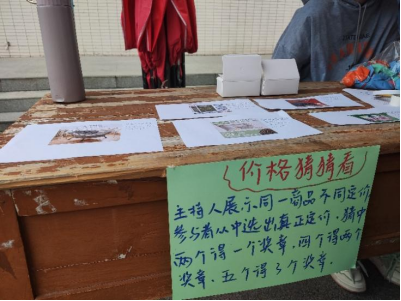 价格猜猜看
主持人展示同一商品不同定价
参与者从中选出真正定价，猜中
两个得一个奖章，四个得两个
奖章，五个得3个奖章.